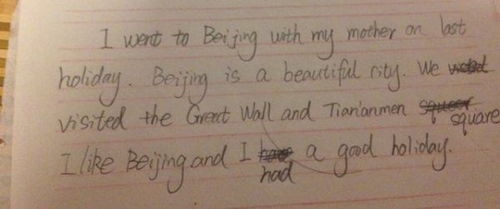 I went to Beijing with my mother on last
holiday. Beijing is a beautiful city. We
visited the Great Wall and Tian'anmen square
I like Beijing and I had a good holiday.